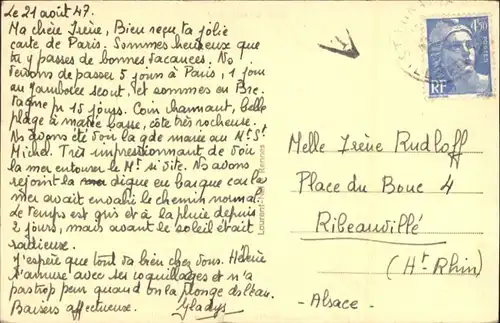 Le 21 août 47.
Ma chère Irène, Bien reçu ta jolie
carte de Paris. Sommes heureux que
tu y passes de bonnes vacances. Ns
venons de passer 5 jours à Paris, 1 jour
au Jamboree scout, et sommes en Bre
tagne pr 15 jours. Coin charmant, belle
plage à marée basse, côte très rocheuse.
Ns avons été voir la gde marée au Mt St
Michel. Très impressionnant de voir
la mer entourer le Mt si vite. Ns avons
rejoint la digue en barque car la
mer avait envahi le chemin normal.
Le temps est gris et à la pluie depuis
2 jours, mais avant le soleil était
radieuse.
J'espère que tout va bien chez vous. Hélène
s'amuse avec ses coquillages et n'a
pas trop peur quand on la plonge ds l'eau.
Baisers affectueux. Gladys
Laurent-Nel, Rennes
4F50
POSTES
RF
Melle Irène Rudloff
Place du Bouc 4
Ribeauvillé
(Ht-Rhin)
-Alsace-